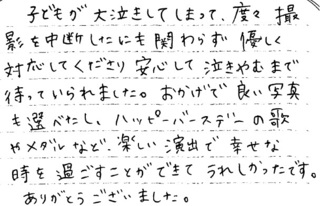 子どもが大泣きしてしまって、度々撮
影を中断したにも関わらず優しく
対応してくださり安心して泣きやむまで
待っていられました。おかげで良い写真
も選べたし、ハッピーバースデーの歌
やメダルなど、楽しい演出で幸せな
時を過ごすことができてうれしかったです。
ありがとうございました。